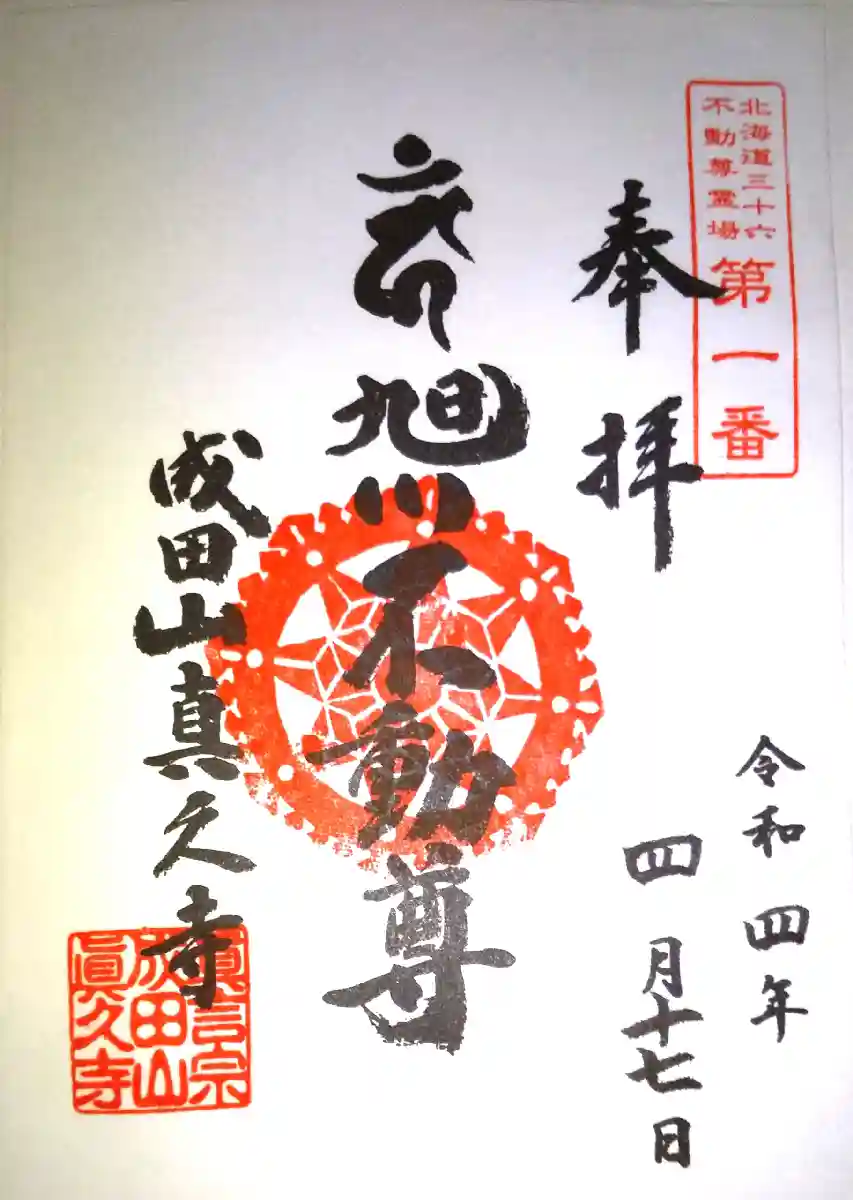 北海道三十六
不動尊霊場
第一番
奉拝
令和四年
四月十七日
旭川不動尊
成田山真久寺
真言宗
成田山
眞久寺